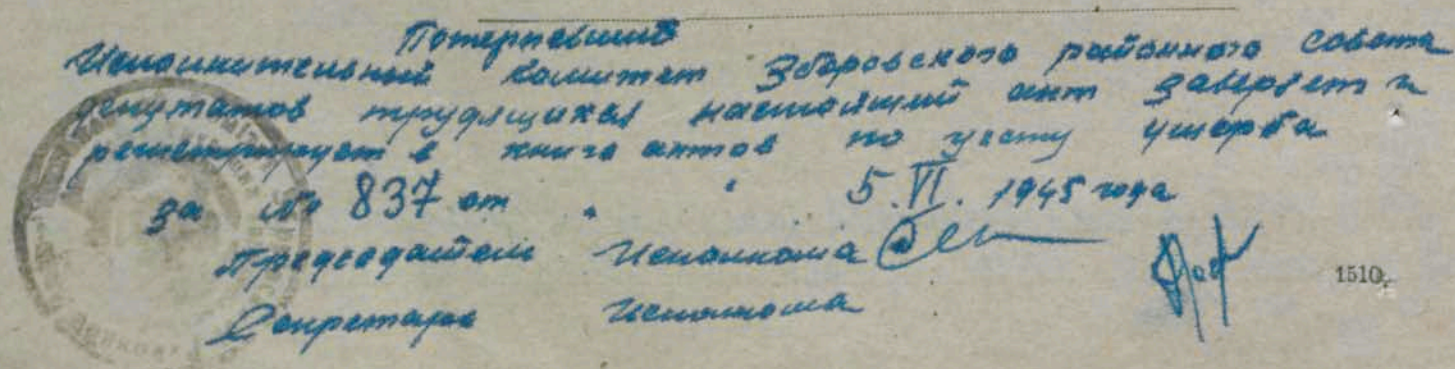 Потерпевший
Исполнительный комитет Зборовского районного совета
депутатов трудящихся настоящий акт заверяет и
регистрирует в книге актов по учету ущерба
за № 837 от " " 5.VI. 1945 года
Председатель Исполкома
Секретарь Исполкома
1510.